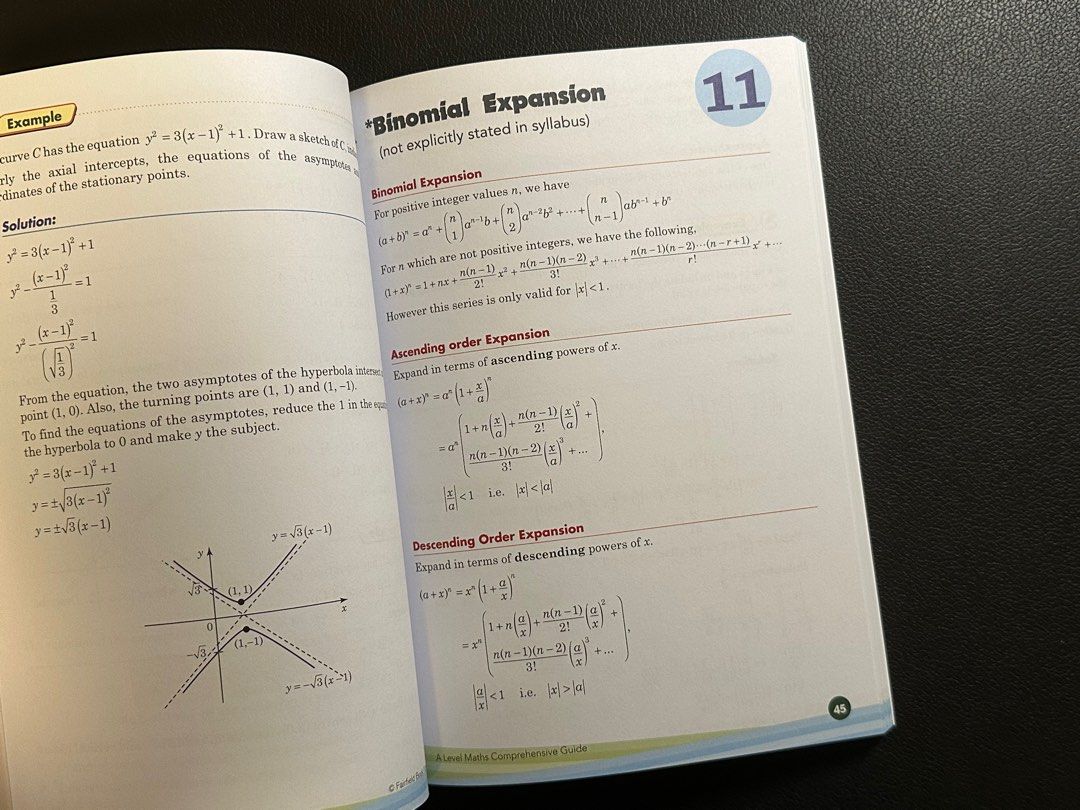 Example
curve C has the equation y² = 3(x−1)² + 1. Draw a sketch of C,
rly the axial intercepts, the equations of the asymptotes
dinates of the stationary points.
Solution:
y² = 3(x−1)² + 1
y² − (x−1)²/(1/3) = 1
y² − (x−1)²/(√(1/3))² = 1
From the equation, the two asymptotes of the hyperbola
point (1, 0). Also, the turning points are (1, 1) and (1, −1).
To find the equations of the asymptotes, reduce the 1 in the
the hyperbola to 0 and make y the subject.
y² = 3(x−1)² + 1
y = ±√(3(x−1)²)
y = ±√3(x−1)
y = √3(x−1)
y
√3
(1, 1)
x
0
−√3
(1,−1)
y = −√3(x−1)
© Fairfield
*Binomial Expansion
11
(not explicitly stated in syllabus)
Binomial Expansion
For positive integer values n, we have
(a+b)ⁿ = aⁿ + (n 1)aⁿ⁻¹b + (n 2)aⁿ⁻²b² + ⋯ + (n n−1)abⁿ⁻¹ + bⁿ
For n which are not positive integers, we have the following,
(1+x)ⁿ = 1 + nx + n(n−1)/2! x² + n(n−1)(n−2)/3! x³ + ⋯ + n(n−1)(n−2)⋯(n−r+1)/r! xʳ + ⋯
However this series is only valid for |x| < 1.
Ascending order Expansion
Expand in terms of ascending powers of x.
(a+x)ⁿ = aⁿ(1 + x/a)ⁿ
= aⁿ(1 + n(x/a) + n(n−1)/2! (x/a)² +
n(n−1)(n−2)/3! (x/a)³ + ...),
|x/a| < 1 i.e. |x| < |a|
Descending Order Expansion
Expand in terms of descending powers of x.
(a+x)ⁿ = xⁿ(1 + a/x)ⁿ
= xⁿ(1 + n(a/x) + n(n−1)/2! (a/x)² +
n(n−1)(n−2)/3! (a/x)³ + ...),
|a/x| < 1 i.e. |x| > |a|
45
A Level Maths Comprehensive Guide